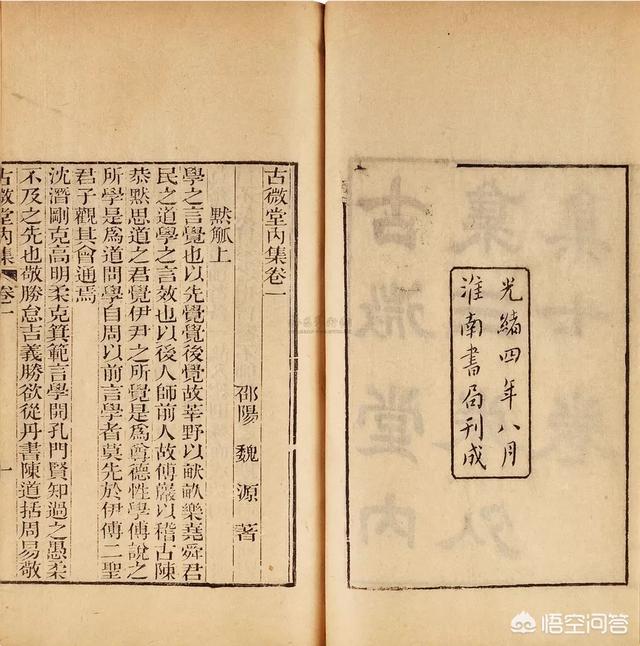 光緒四年八月
淮南書局刊成
古微堂內集卷一
邵陽魏源著
默觚上
學之言覺也以先覺覺後覺故莘野以畎畝樂堯舜君
民之道學之言效也以後人師前人故傅巖以稽古陳
恭默思道之君覺伊尹之所覺是爲尊德性學傅說之
所學是爲道問學自周以前言學者莫先於伊傅二聖
君子觀其會通焉
沈潛剛克高明柔克箕範言學開孔門賢知過之愚柔
不及之先也敬勝怠吉義勝欲從丹書陳道括周易敬
古微堂內集 卷一 一
悟空问答